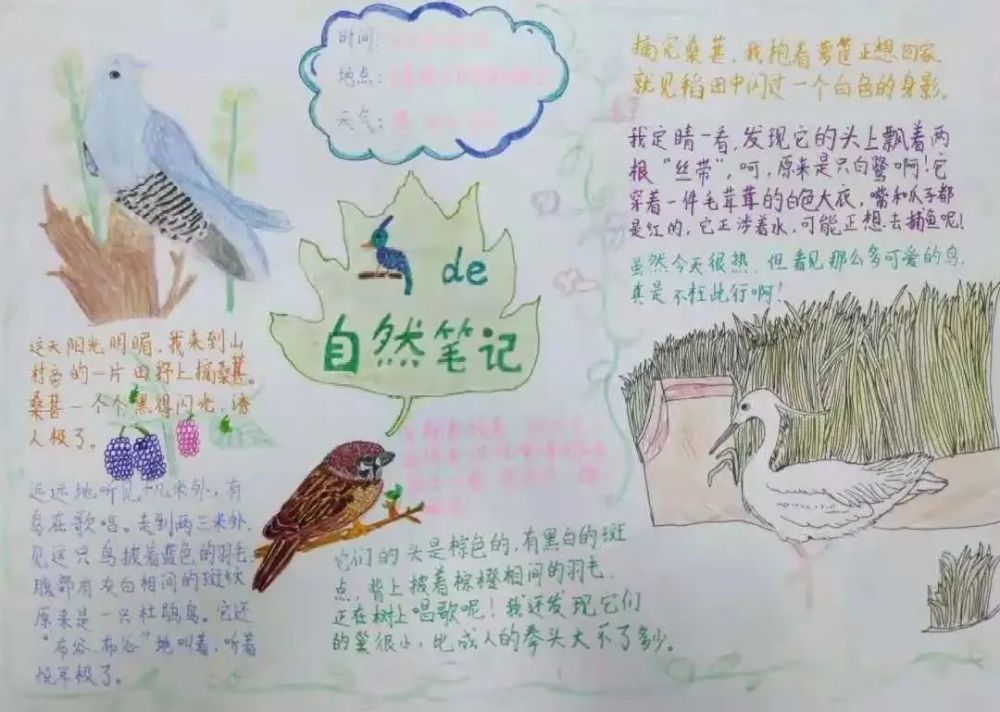 时间:
地点:
天气:
de
自然笔记
这天阳光明媚,我来到山
村旁的一片田野上摘桑葚。
桑葚一个个黑得闪光,诱
人极了。
远远地听见十几米外,有
鸟在歌唱。走到两三米外,
见这只鸟披着蓝色的羽毛,
腹部有灰白相间的斑纹
原来是一只杜鹃鸟。它还
“布谷,布谷”地叫着,听着
悦耳极了。
它们的头是棕色的,有黑白的斑
点,背上披着棕橙相间的羽毛,
正在树上唱歌呢!我还发现它们
的巢很小,比成人的拳头大不了多少。
摘完桑葚,我抱着箩筐正想回家,
就见稻田中闪过一个白色的身影。
我定睛一看,发现它的头上飘着两
根“丝带”,呵,原来是只白鹭啊!它
穿着一件毛茸茸的白色大衣,嘴和爪子都
是红的,它正涉着水,可能正想去捕鱼呢!
虽然今天很热,但看见那么多可爱的鸟,
真是不枉此行啊!